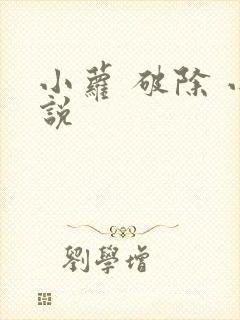 小蘿 破除
說
劉學增